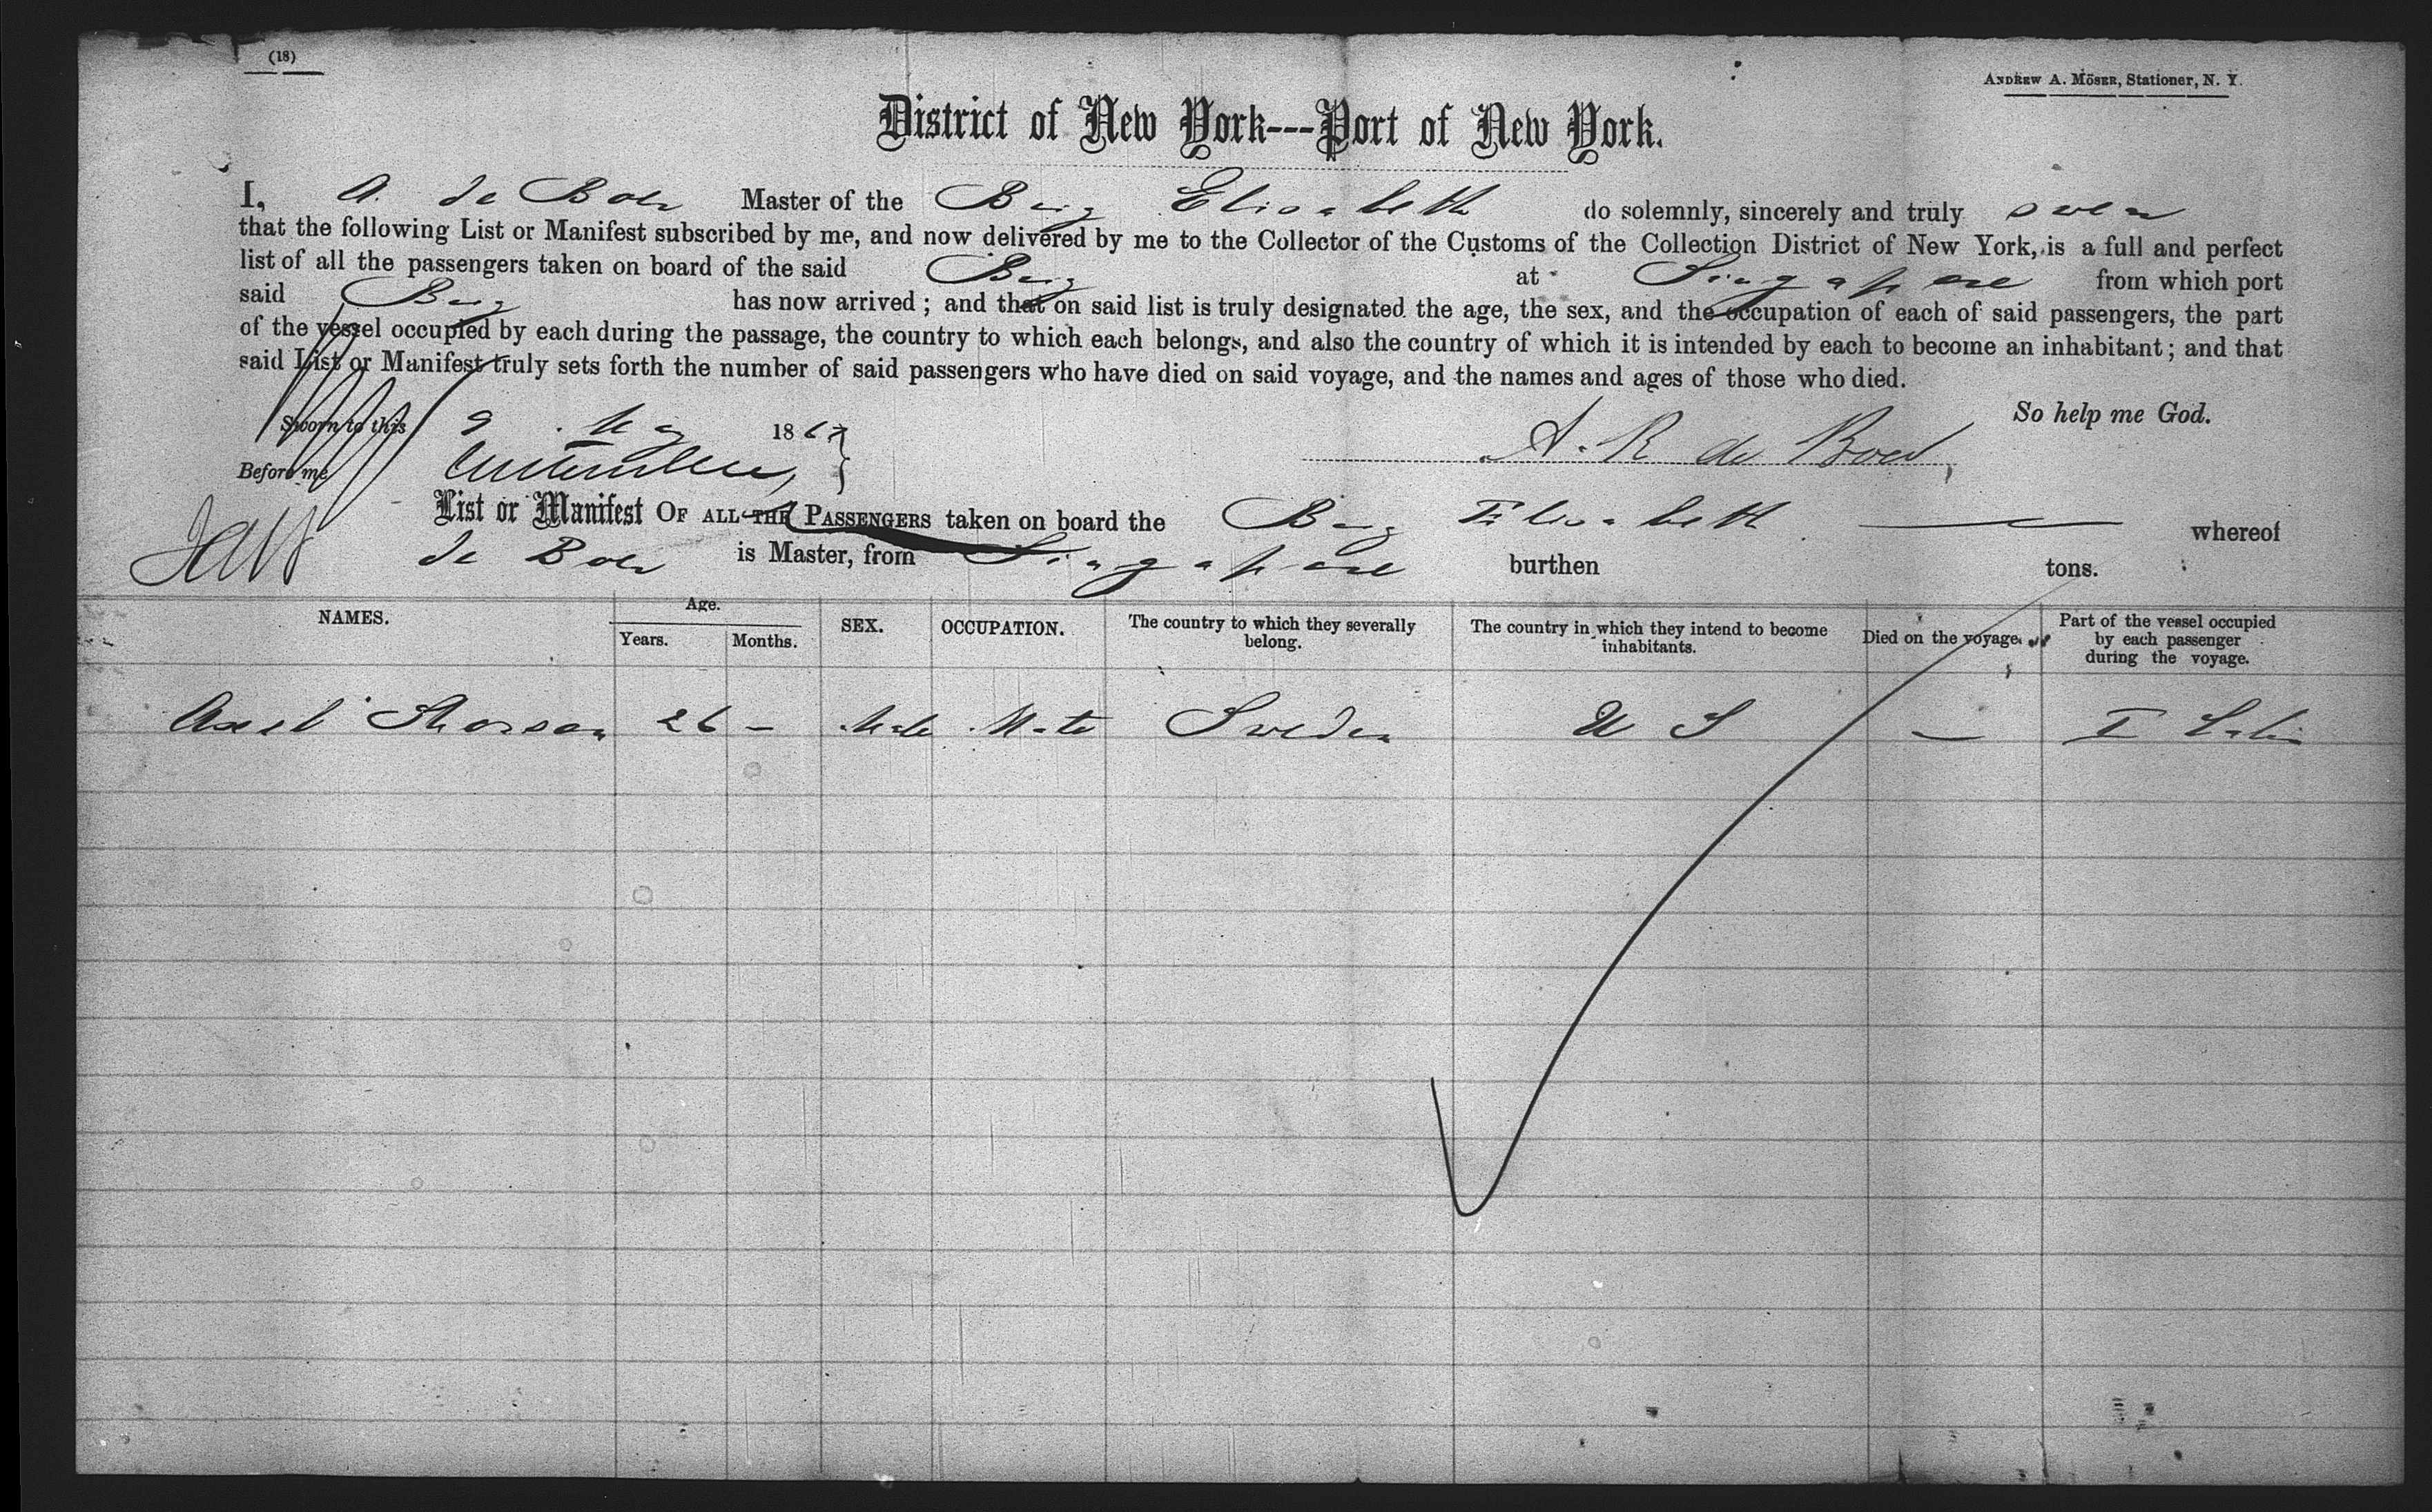 (18)
ANDREW A. MÖSER, Stationer, N. Y.
District of New York---Port of New York.
I, A. de Boer Master of the Brig Elisabeth do solemnly, sincerely and truly swear
that the following List or Manifest subscribed by me, and now delivered by me to the Collector of the Customs of the Collection District of New York, is a full and perfect
list of all the passengers taken on board of the said Brig at Singapore from which port
said Brig has now arrived; and that on said list is truly designated the age, the sex, and the occupation of each of said passengers, the part
of the vessel occupied by each during the passage, the country to which each belongs, and also the country of which it is intended by each to become an inhabitant; and that
said List or Manifest truly sets forth the number of said passengers who have died on said voyage, and the names and ages of those who died.
So help me God.
Sworn to this 9 May 1867
A. R de Boer
Before me
List or Manifest OF ALL THE PASSENGERS taken on board the Brig Elisabeth whereof
de Boer is Master, from Singapore burthen tons.
NAMES. Age. Years. Months. SEX. OCCUPATION. The country to which they severally belong. The country in which they intend to become inhabitants. Died on the voyage. Part of the vessel occupied by each passenger during the voyage.
Axel 26 - Male Mate Sweden U S — I Cabin